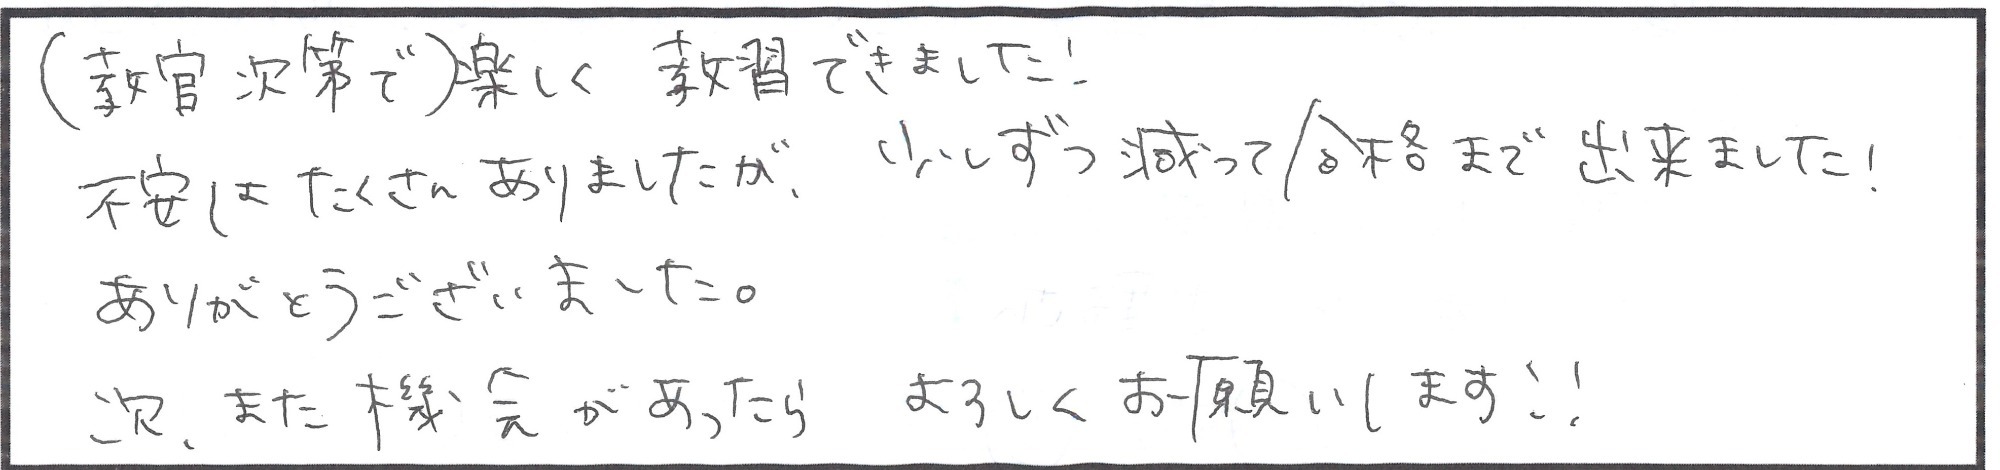 (教官次第で)楽しく 教習できました!
不安はたくさんありましたが、少しずつ減って合格まで出来ました!
ありがとうございました。
次、また機会があったら よろしくお願いします!!